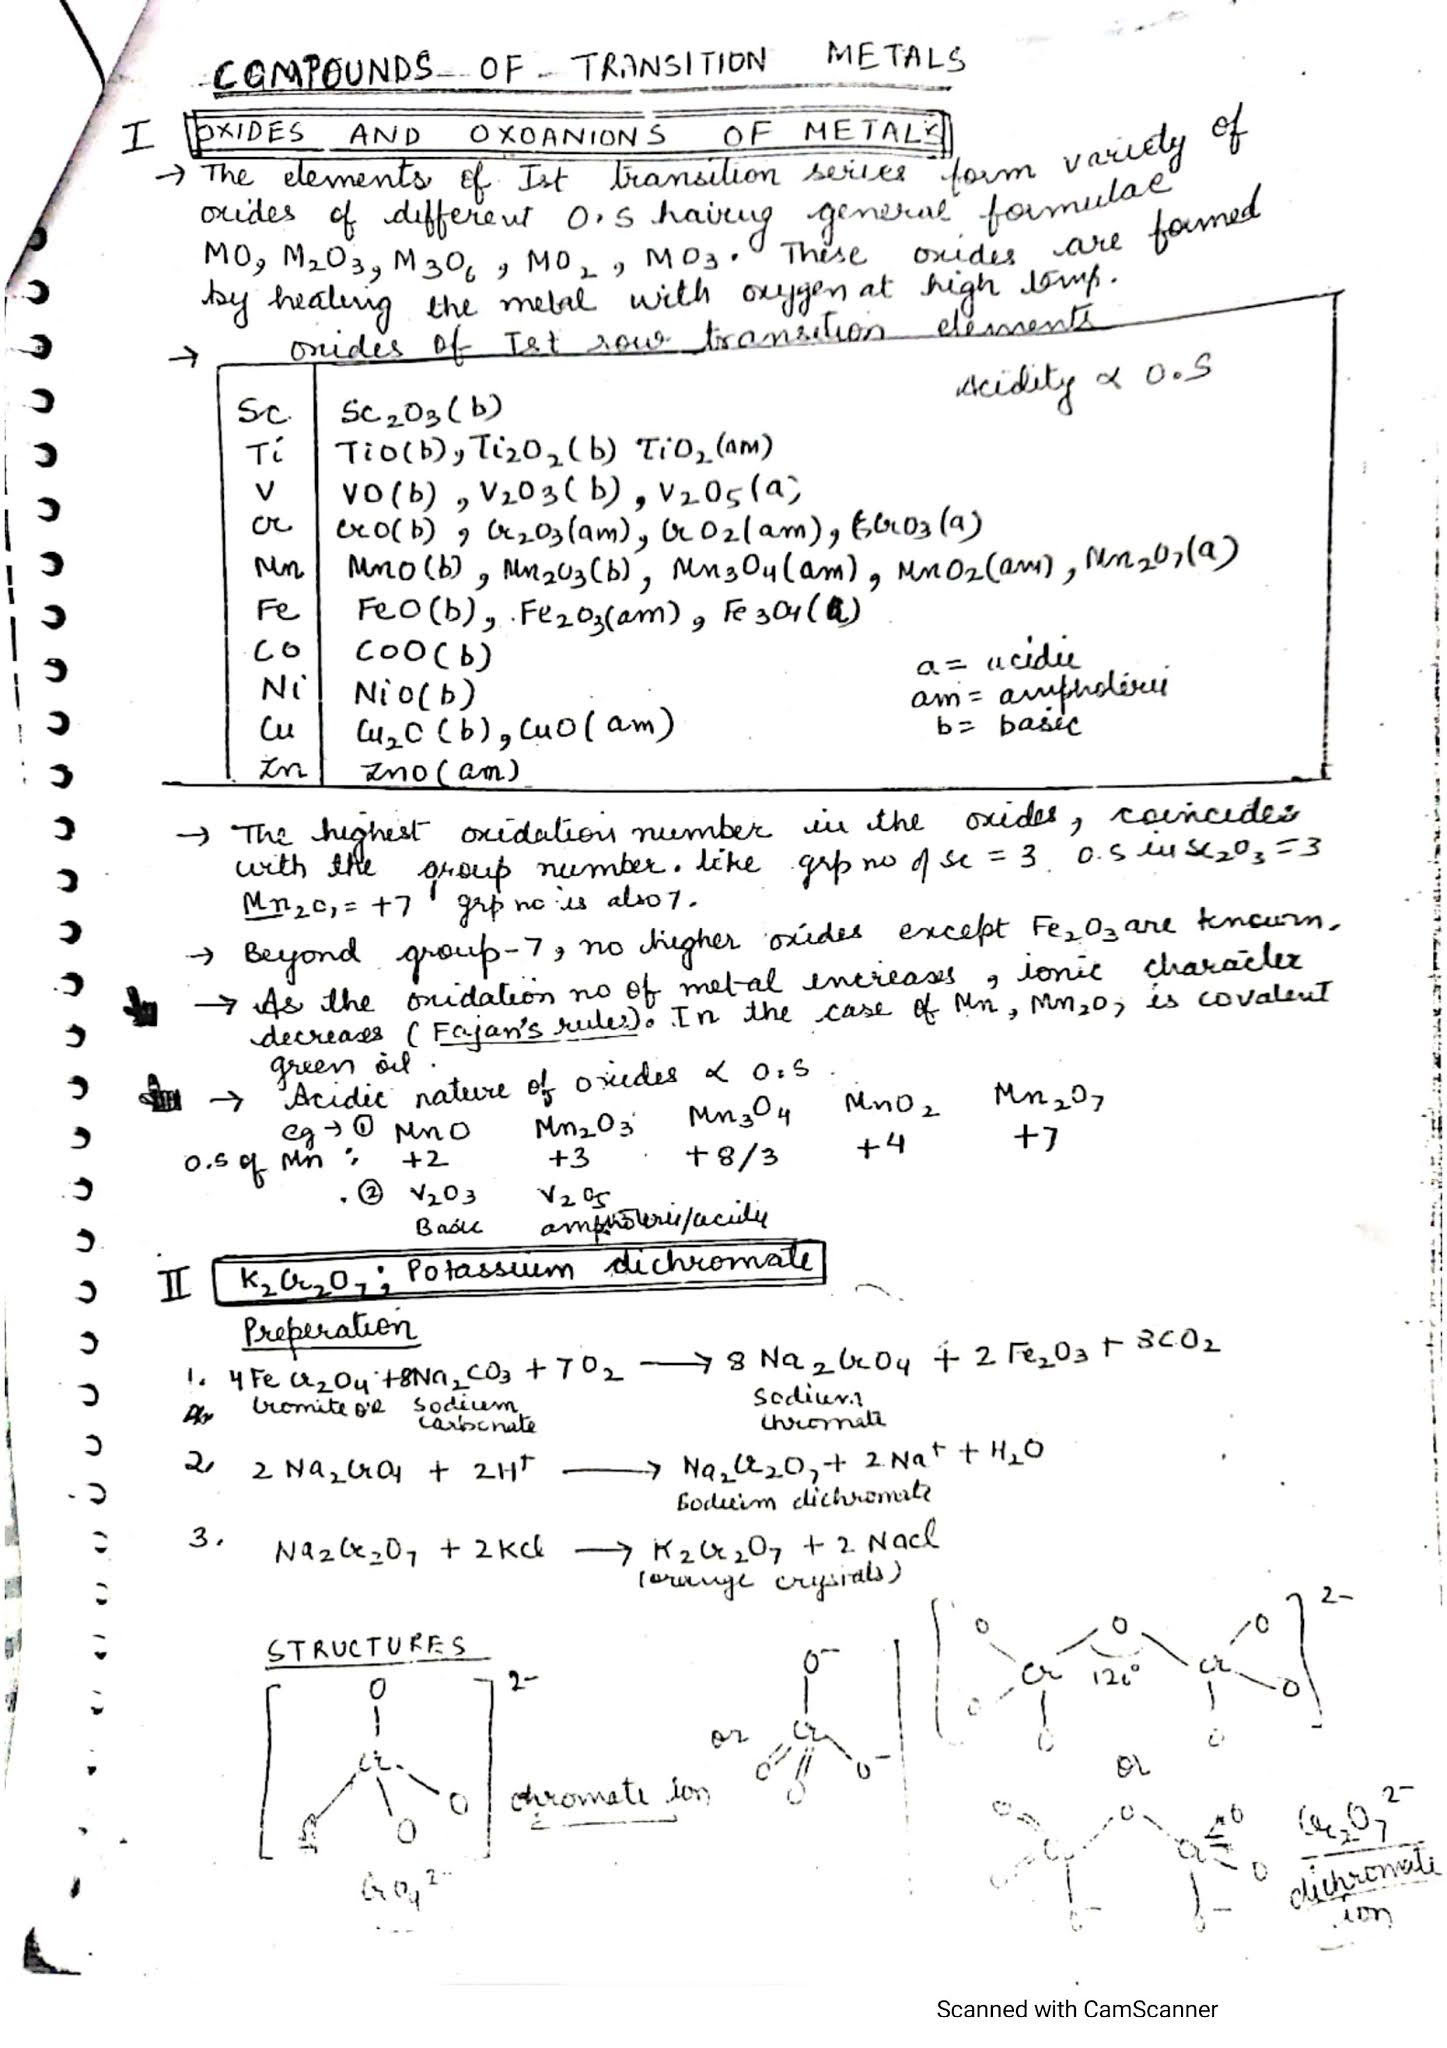 COMPOUNDS OF TRANSITION METALS
I OXIDES AND OXOANIONS OF METALS
→ The elements of Ist transition series form variety of
oxides of different O.S having general formulae
MO, M2O3, M3O6, MO2, MO3. These oxides are formed
by heating the metal with oxygen at high temp.
→ oxides of Ist row transition elements
Acidity ∝ O.S
Sc Sc2O3(b)
Ti TiO(b), Ti2O2(b) TiO2(am)
V VO(b), V2O3(b), V2O5(a)
Cr CrO(b), Cr2O3(am), CrO2(am), CrO3(a)
Mn MnO(b), Mn2O3(b), Mn3O4(am), MnO2(am), Mn2O7(a)
Fe FeO(b), Fe2O3(am), Fe3O4(a)
Co CoO(b)
a = acidic
Ni NiO(b)
am = amphoteric
Cu Cu2O(b), CuO(am)
b = basic
Zn ZnO(am)
→ The highest oxidation number in the oxides, coincides
with the group number. like grp no of Sc = 3 O.S in Sc2O3 = 3
Mn2O7 = +7 grp no is also 7.
→ Beyond group-7, no higher oxides except Fe2O3 are known.
→ As the oxidation no of metal increases, ionic character
decreases (Fajan's rules). In the case of Mn, Mn2O7 is covalent
green oil.
→ Acidic nature of oxides ∝ O.S
eg → ① MnO Mn2O3 Mn3O4 MnO2 Mn2O7
O.S of Mn : +2 +3 +8/3 +4 +7
② V2O3 V2O5
Basic amphoteric/acidic
II K2Cr2O7 ; Potassium dichromate
Preperation
1. 4FeCr2O4 + 8Na2CO3 + 7O2 → 8Na2CrO4 + 2Fe2O3 + 8CO2
cromite ore sodium carbonate sodium chromate
2. 2Na2CrO4 + 2H+ → Na2Cr2O7 + 2Na+ + H2O
Sodium dichromate
3. Na2Cr2O7 + 2KCl → K2Cr2O7 + 2NaCl
(orange crystals)
STRUCTURES
[ O Cr O O O ] 2-
chromate ion
CrO4 2-
or
O- Cr O O O-
[ O O Cr O O 126° Cr O O O ] 2-
or
O O Cr O- O Cr O O O-
Cr2O7 2-
dichromate
ion
Scanned with CamScanner